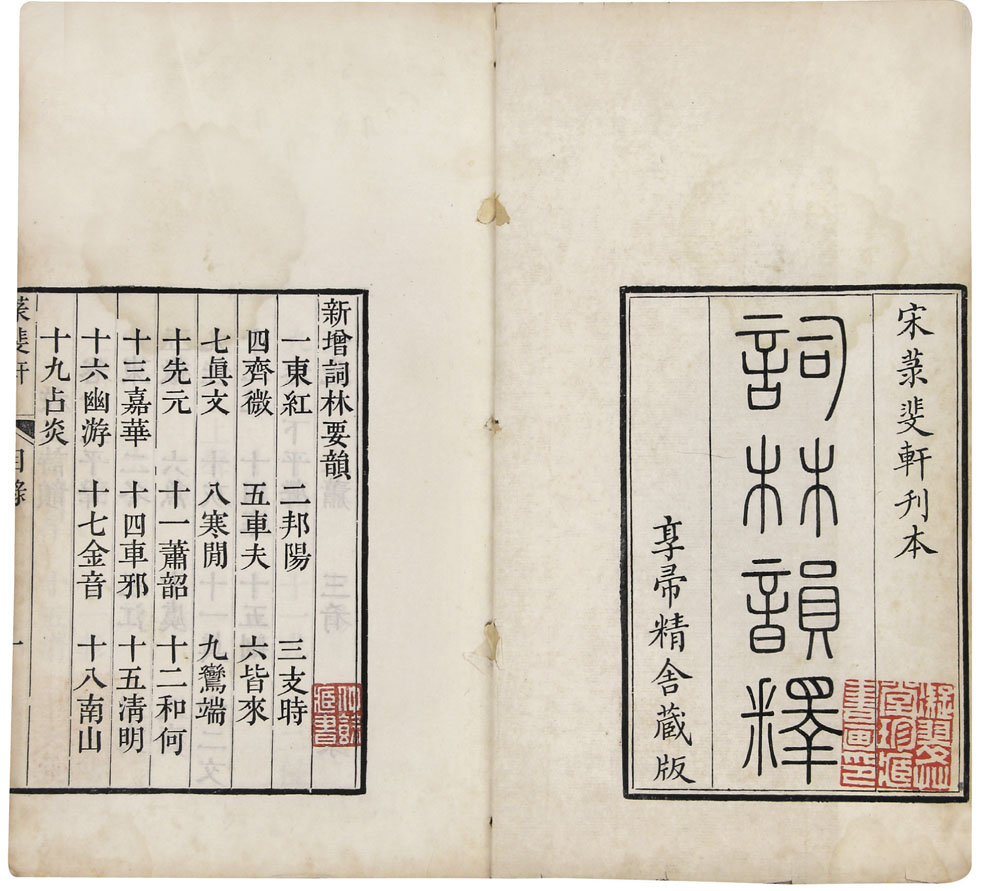 宋菉斐軒刊本
詞林韻釋
享帚精舍藏版
堂珍藏
書畫印
新增詞林要韻
藏書
一東紅 二邦陽 三支時
四齊微 五車夫 六皆來
七眞文 八寒閒 九鸞端
十先元 十一蕭韶 十二和何
十三嘉華 十四車邪 十五清明
十六幽游 十七金音 十八南山
十九占炎
菉斐軒 目錄 一